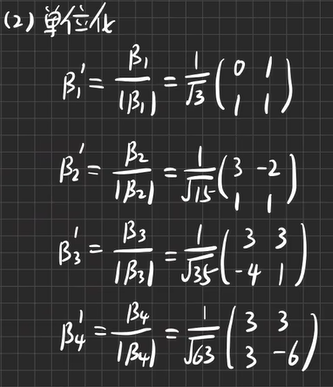 (2) 单位化
β₁' = β₁/|β₁| = 1/√3 (0 1; 1 1)
β₂' = β₂/|β₂| = 1/√15 (3 -2; 1 1)
β₃' = β₃/|β₃| = 1/√35 (3 3; -4 1)
β₄' = β₄/|β₄| = 1/√63 (3 3; 3 -6)